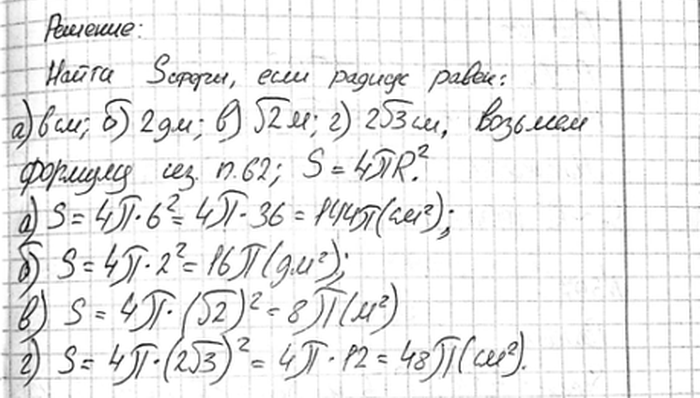 Решение:
Найти Sсферы, если радиус равен:
а) 6 см; б) 2 дм; в) √2 м; г) 2√3 см, возьмем
формулу из п.62; S = 4πR².
а) S = 4π·6² = 4π·36 = 144π(см²);
б) S = 4π·2² = 16π(дм²);
в) S = 4π·(√2)² = 8π(м²)
г) S = 4π·(2√3)² = 4π·12 = 48π(см²).